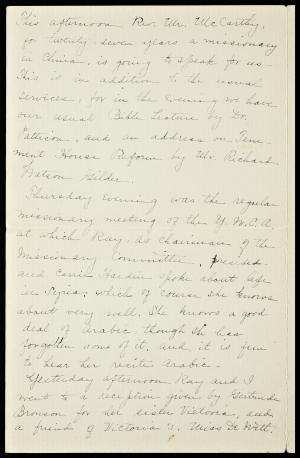 This afternoon Rev. Mr. McCarthy,
for twenty-seven years a missionary
in China, is going to speak for us.
This is in addition to the usual
services, for in the evening we have
our usual Bible Lecture by Dr.
Pattison, and an address on Tene-
ment House Reform by Mr. Richard
Watson Gilder.
Thursday evening was the regular
missionary meeting of the Y.W.C.A.
at which Ray, as chairman of the
Missionary Committee, presided
and Carrie Hardin spoke about life
in Syria, which of course she knows
about very well. She knows a good
deal of Arabic though she has
forgotten some of it, and it is fun
to hear her recite Arabic.
Yesterday afternoon Ray and I
went to a reception given by Gertrude
Bronson for her sister Victoria, and
a friend of Victoria's, Miss De Witt.